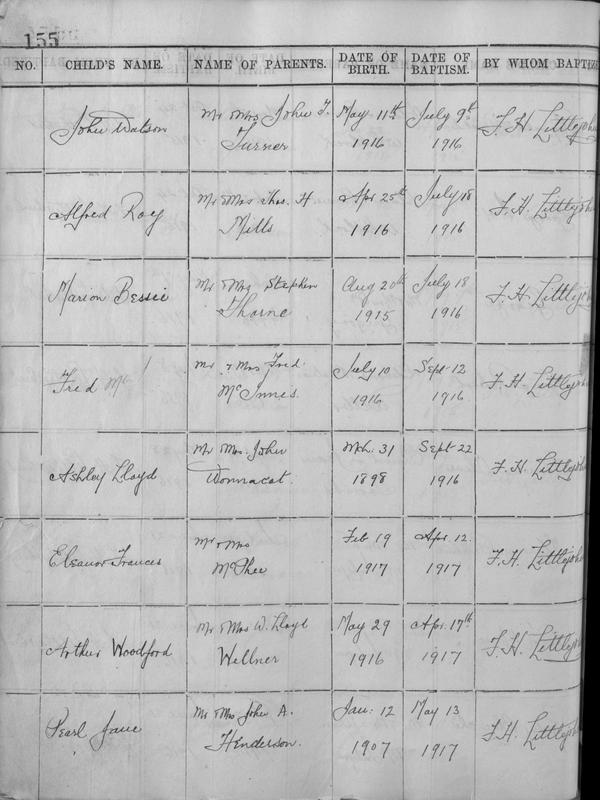 155
NO. CHILD'S NAME. NAME OF PARENTS. DATE OF BIRTH. DATE OF BAPTISM. BY WHOM BAPTIZE
John Watson Mr & Mrs John F. May 11th July 9th F. H. Littlejohn
Turner 1916 1916
Alfred Roy Mr & Mrs Thos. H Apr 25th July 18 F. H. Littlejohn
Mills 1916 1916
Marion Bessie Mr & Mrs Stephen Aug 20th July 18 F. H. Littlejohn
Thorne 1915 1916
Fred Mc Mr & Mrs Fred July 10 Sept 12 F. H. Littlejohn
McInnis 1916 1916
Ashley Lloyd Mr Mrs. John Mch. 31 Sept 22 F. H. Littlejohn
Wonnacot. 1898 1916
Eleanor Frances Mr & Mrs Feb 19 Apr. 12. F. H. Littlejohn
McPhee 1917 1917
Arthur Woodford Mr & Mrs W. Lloyd May 29 Apr. 17th F. H. Littlejohn
Wellner 1916 1917
Pearl Jane Mr & Mrs John A. Jan: 12 May 13 F. H. Littlejohn
Henderson. 1907 1917